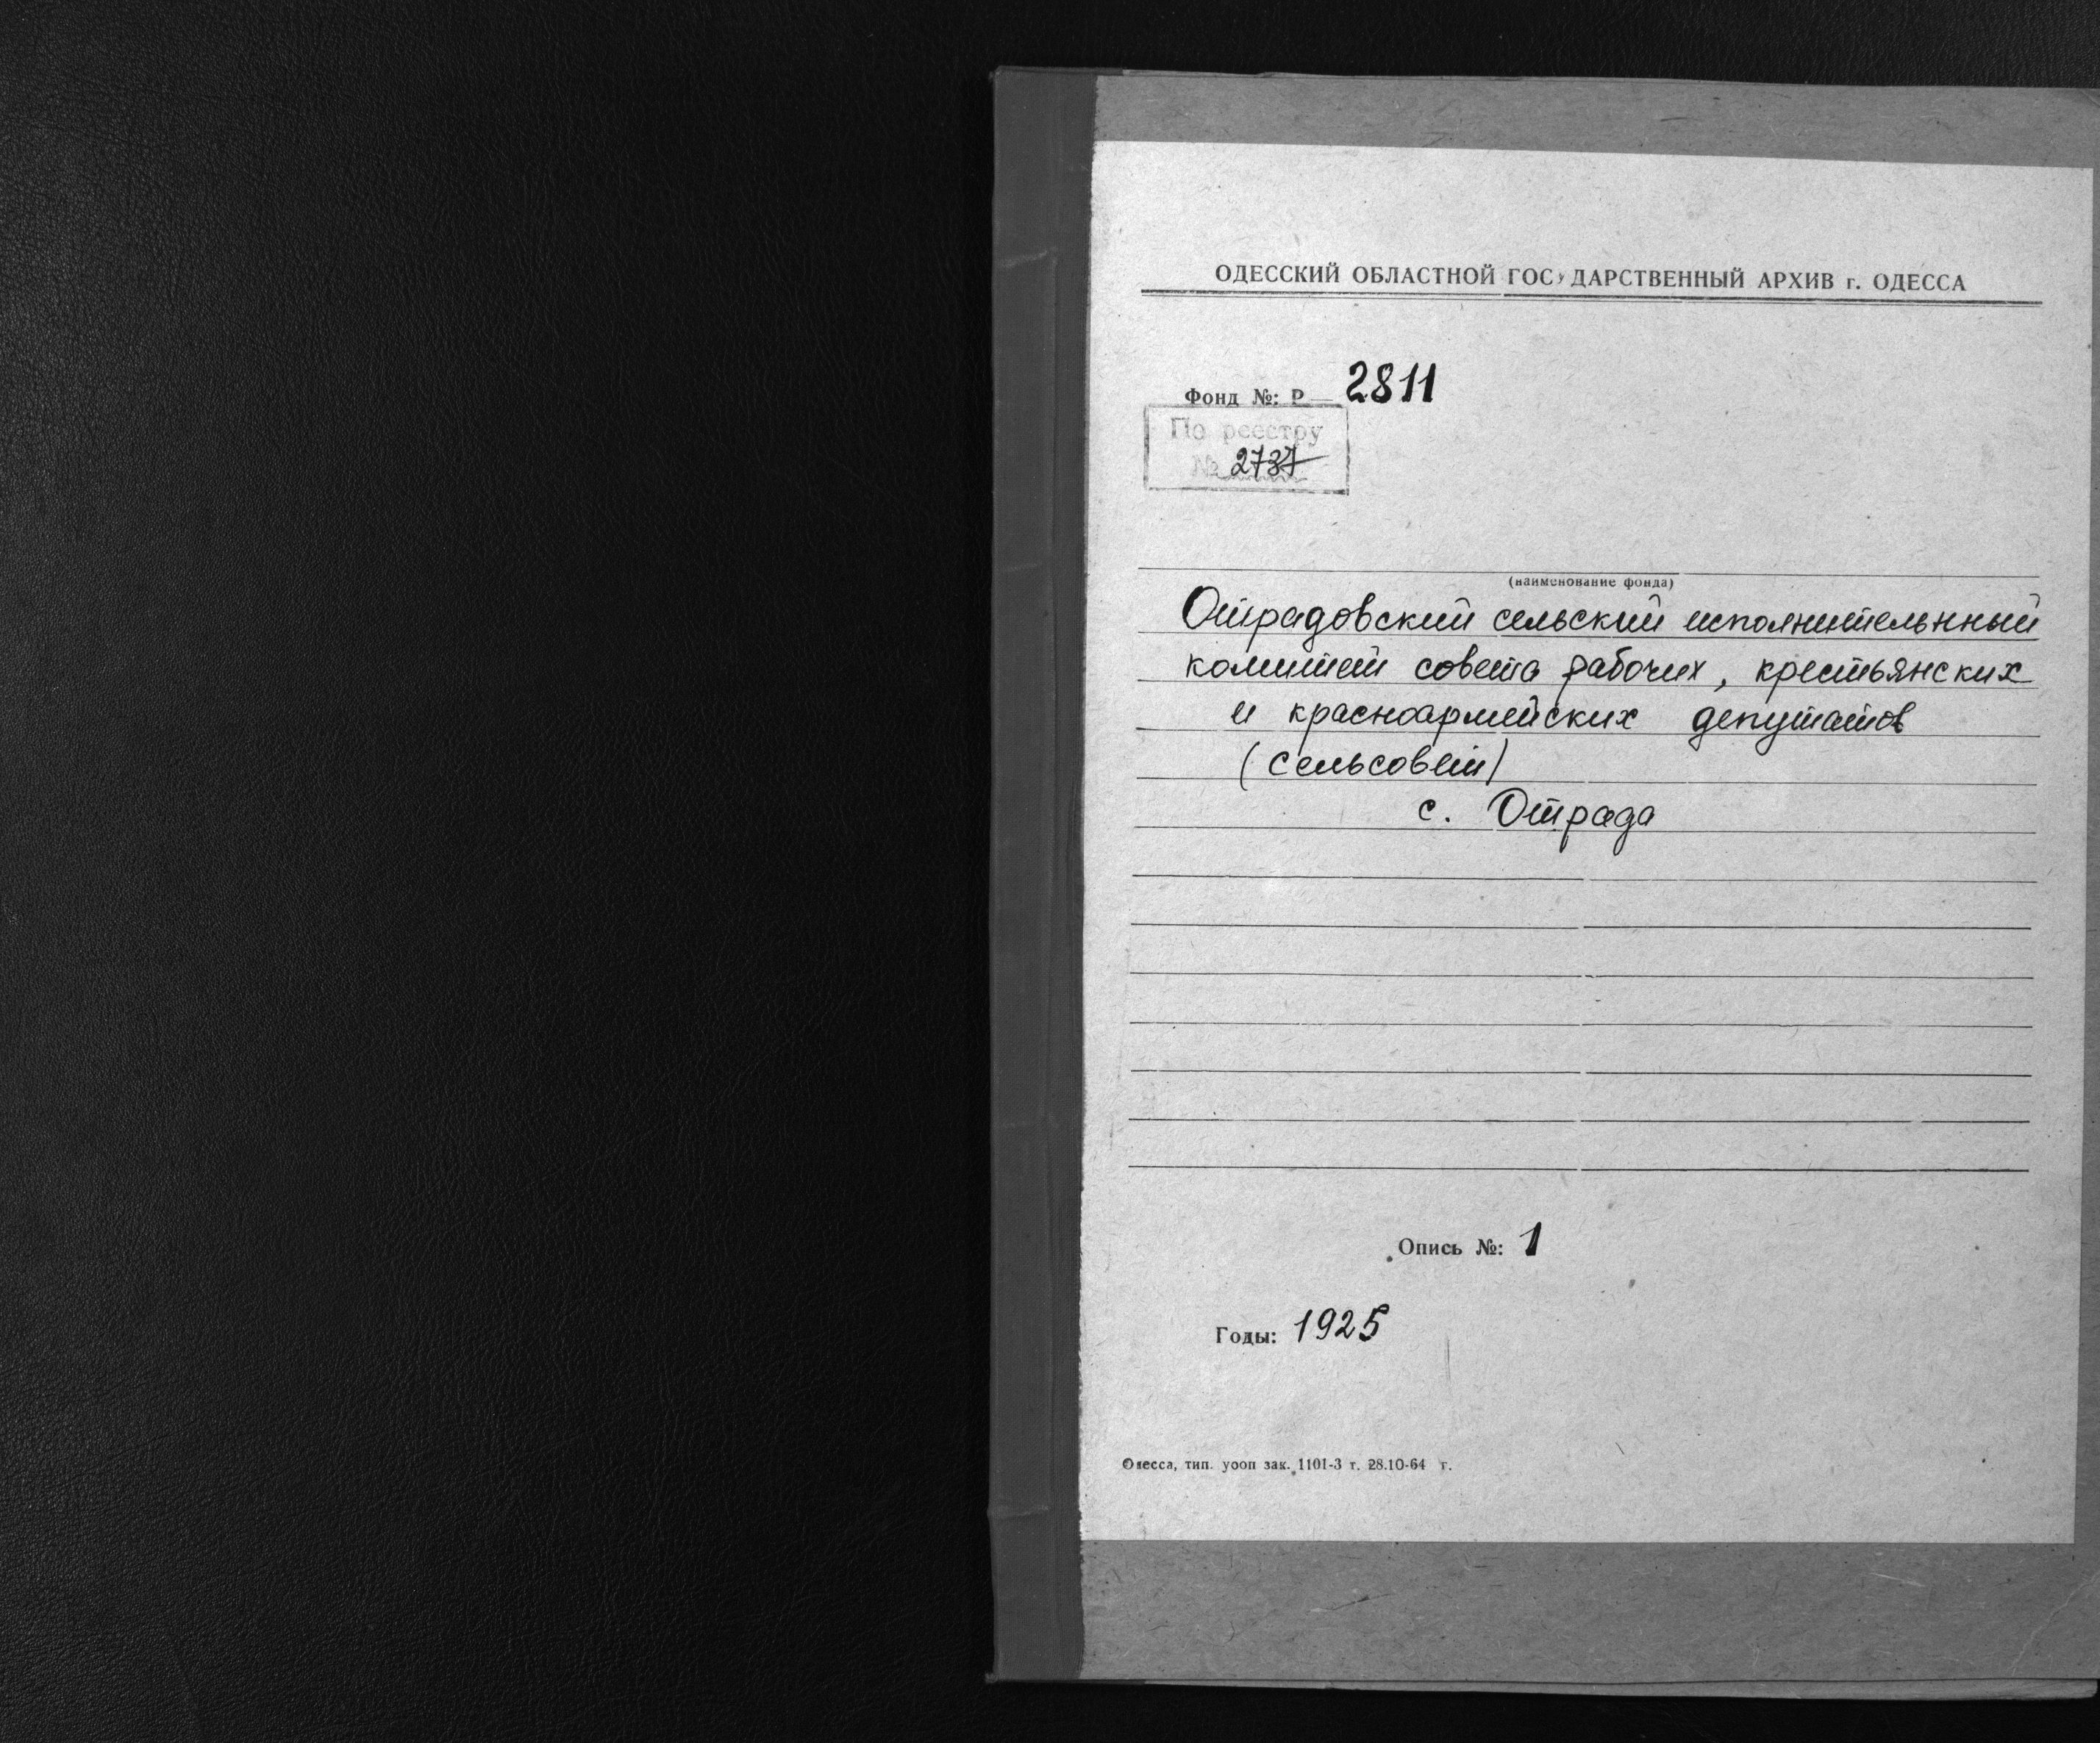 ОДЕССКИЙ ОБЛАСТНОЙ ГОСУДАРСТВЕННЫЙ АРХИВ г. ОДЕССА
Фонд №: Р— 2811
По реестру
№ 2737
(наименование фонда)
Отрадовский сельский исполнительнный
комитет совета рабочих, крестьянских
и красноармейских депутатов
(сельсовет)
с. Отрада
Опись №: 1
Годы: 1925
Одесса, тип. уооп зак. 1101-3 т. 28.10-64 г.